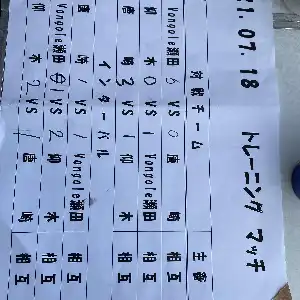 1.07.18 トレーニング マッチ
対戦チーム 主審
Vongole瀬田 6 VS 0 唐 崎 相互
仰 木 0 VS 1 Vongole瀬田 相互
唐 崎 3 VS 1 仰 木 相互
インターバル
唐 崎 1 VS 1 Vongole瀬田 相互
Vongole瀬田 1 VS 2 仰 木 相互
木 2 VS 1 唐 崎 相互